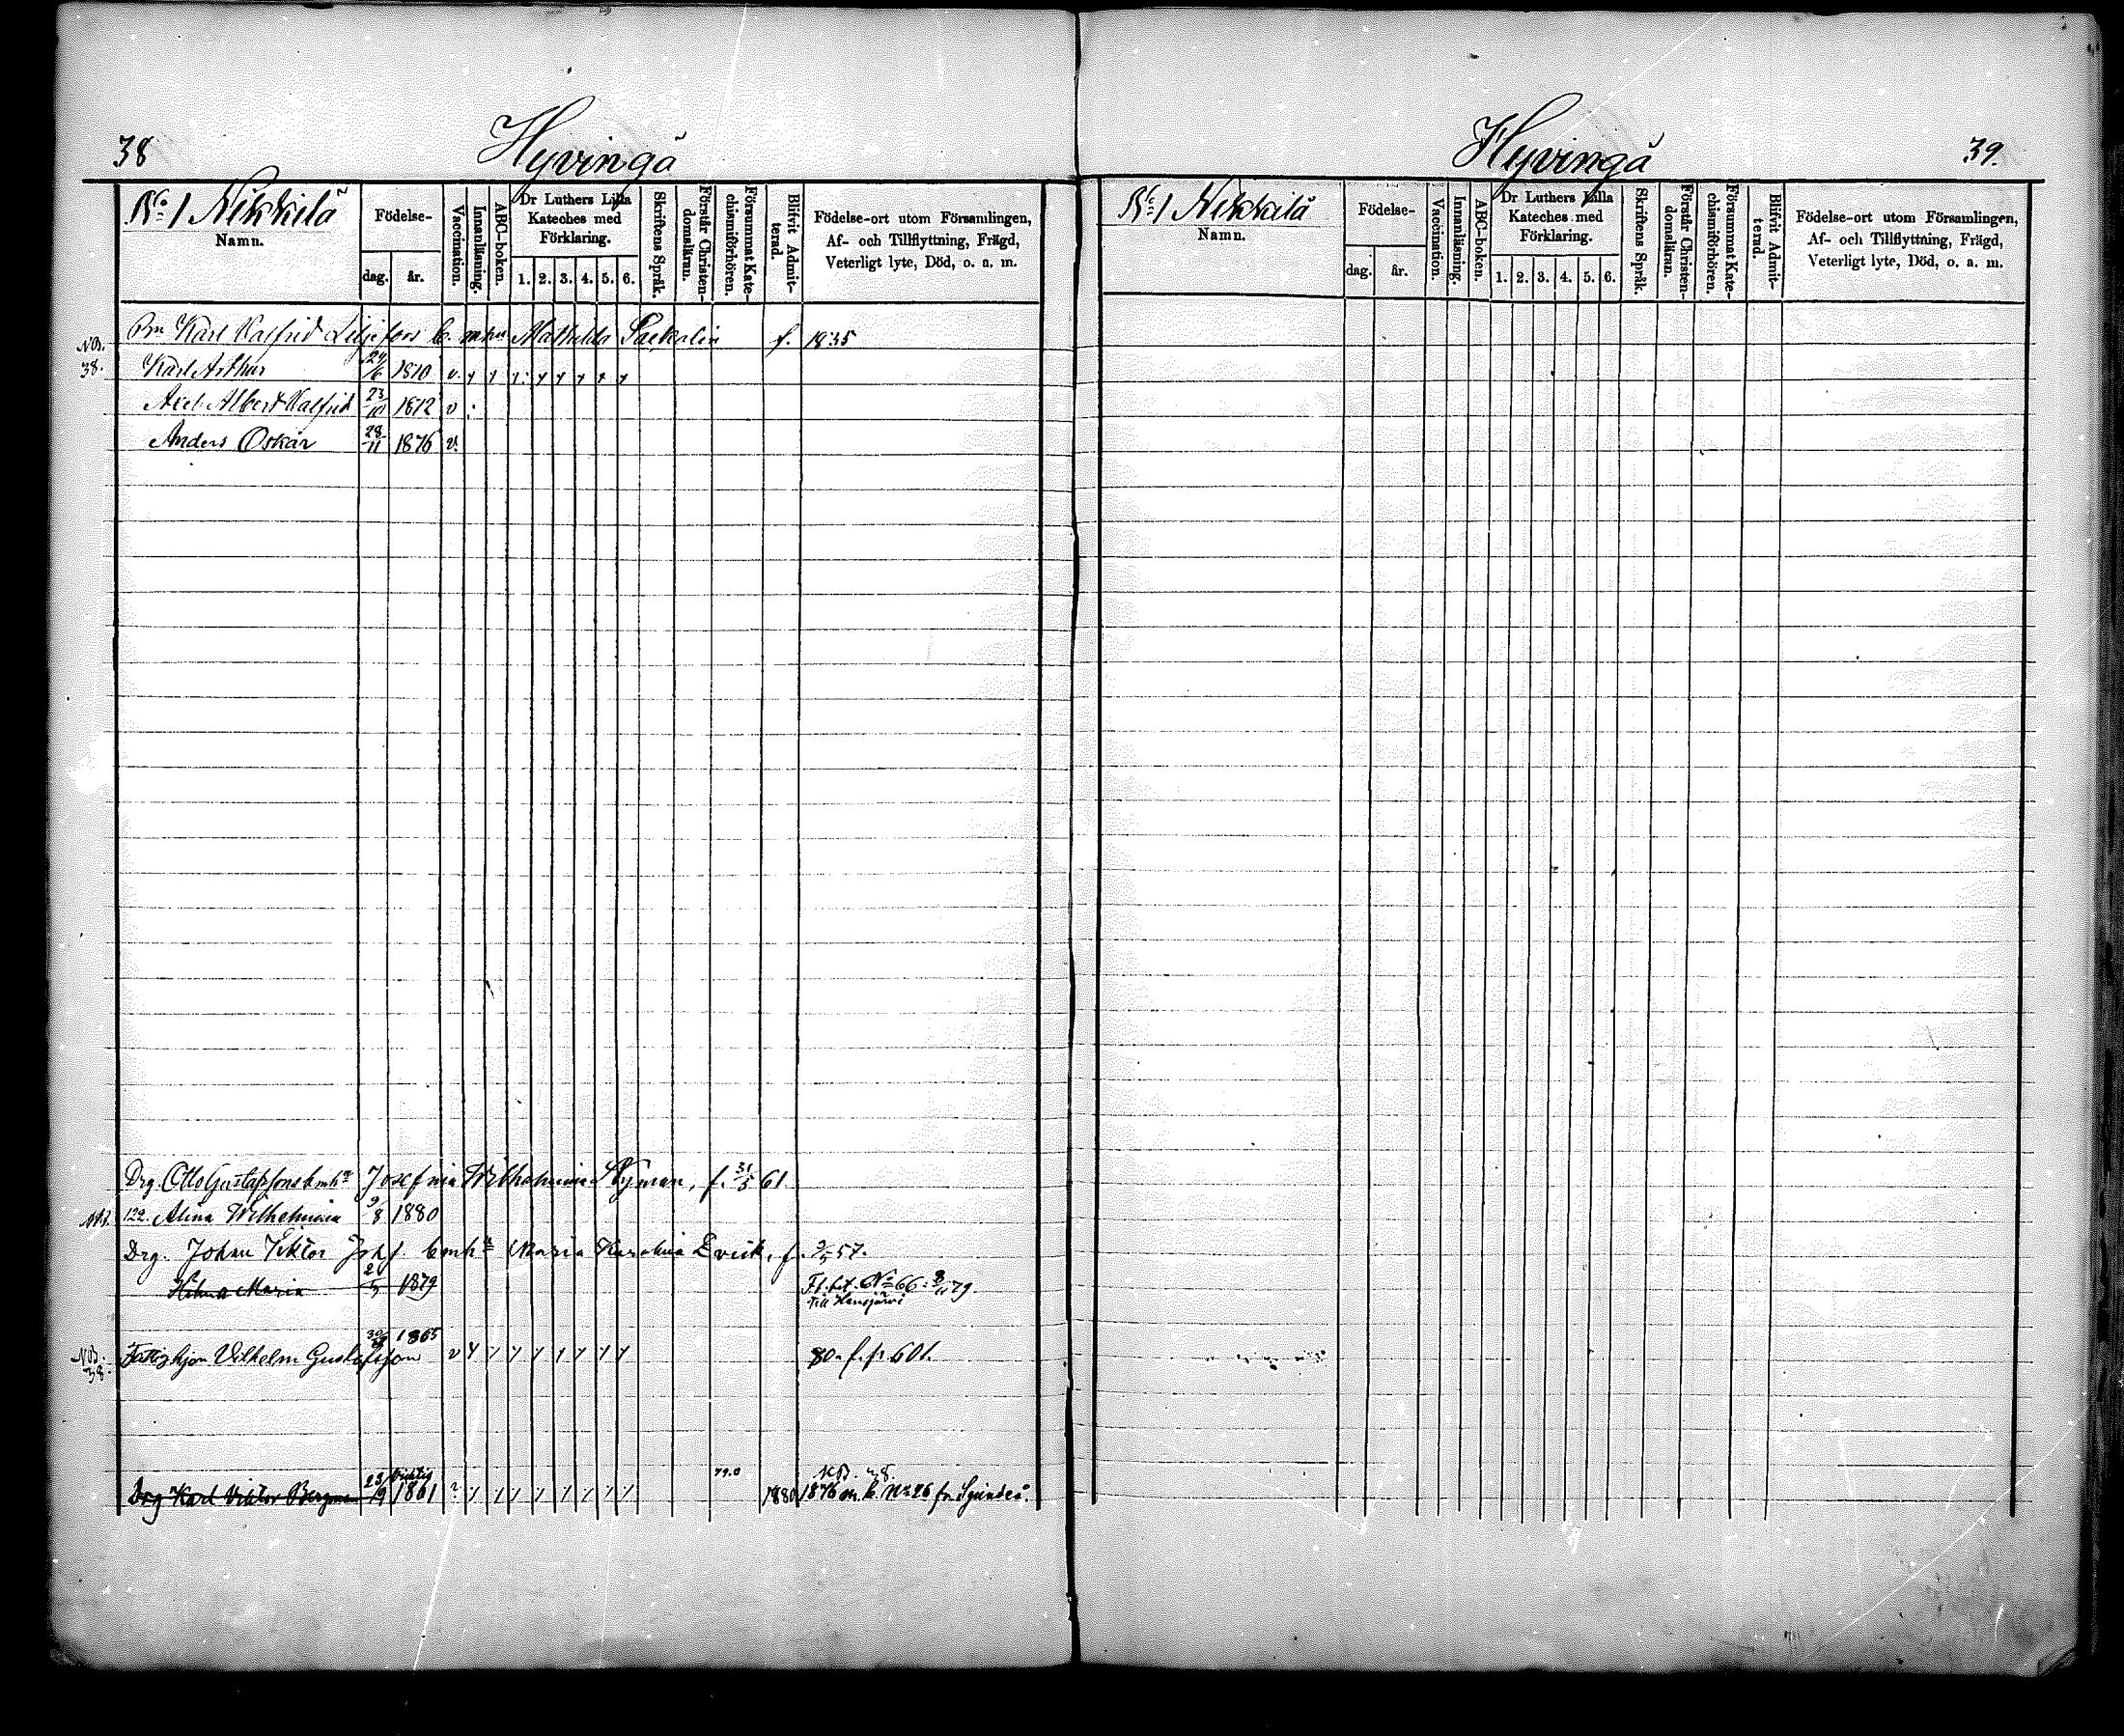 38
Hyvingä
No 1 Nikkilä
Namn.
Födelse-
dag.
år.
Vaccination.
Innanläsning.
ABC-boken.
Dr Luthers Lilla
Kateches med
Förklaring.
1. 2. 3. 4. 5. 6.
Skriftens Språk.
Förstår Christen-
domsläran.
Försummat Kate-
chismiförhören.
Blifvit Admit-
terad.
Födelse-ort utom Församlingen,
Af- och Tillflyttning, Frägd,
Veterligt lyte, Död, o. a. m.
Karl Valfrid Liljefors b. Mathilda f. 1835
NB. 38. Karl Arthur 1870 v.
Axel Albert Valfrid 23/10 1872 v
Anders Oskar 28/11 1876 v.
Drg. Otto Gustafsons Josefina Wilhelmina Nyman, f. 31/5 61.
NB. 122. Alina Wilhelmina 9/8 1880
Drg. Johan Viktor Joh. f. Maria Karolina f. 57.
Hilma Maria 2/5 1879 Fl. bet. No 66: 79.
till Hausjärvi
1865
NB. 38. Vilhelm Gustafsson v 80. f. p. 601.
79.0 NB.
Drg Karl Viktor Bergman 23/9 1861 1880 1876 m. b. No 26 fr. Sjundeå.
Hyvingä
39.
No 1 Nikkilä
Namn.
Födelse-
dag.
år.
Vaccination.
Innanläsning.
ABC-boken.
Dr Luthers Lilla
Kateches med
Förklaring.
1. 2. 3. 4. 5. 6.
Skriftens Språk.
Förstår Christen-
domsläran.
Försummat Kate-
chismiförhören.
Blifvit Admit-
terad.
Födelse-ort utom Församlingen,
Af- och Tillflyttning, Frägd,
Veterligt lyte, Död, o. a. m.